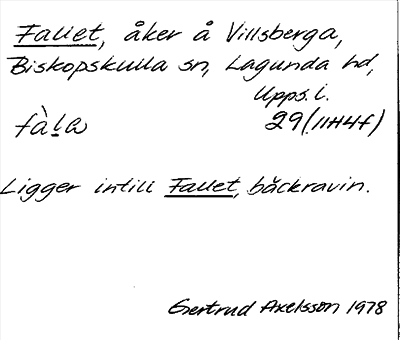 Fallet, åker å Villsberga,
Biskopskulla sn, Lagunda hd,
Upps. l.
fàḷa 29(11H4f)
Ligger intill Fallet, bäckravin.
Gertrud Axelsson 1978